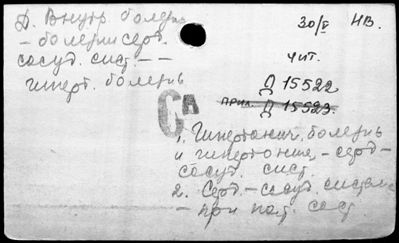 Д. Внутр болезнь
- болезни серд.
сосуд. сист. - -
гиперт. болезнь
30/V НВ.
чит.
Д 15522
прил. Д 15523.
СА
1. Гипертонич. болезнь
и гипертония - серд-
сосуд. сист.
2. Серд.-сосуд. система
- при пат. сост